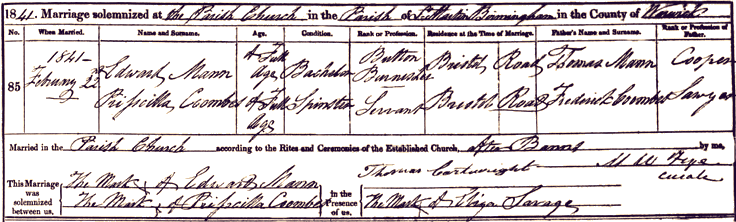 1841. Marriage solemnized at the Parish Church in the Parish of St Martin Birmingham in the County of Warwick
No. When Married. Name and Surname. Age. Condition. Rank or Profession. Residence at the Time of Marriage. Father's Name and Surname. Rank or Profession of Father.
85 1841 February 22 Edward Mann Of Full Age Bachelor Button Burnisher Bristol Road Thomas Mann Cooper
Prisscilla Coombes Of Full Age Spinster Servant Bristol Road Frederick Coombes Sawyer
Married in the Parish Church according to the Rites and Ceremonies of the Established Church, after Banns by me,
This Marriage was solemnized between us, The Mark of Edward Mann in the Presence of us, Thomas Cartwright M W Curate
The Mark of Prisscilla Coombes The Mark of Eliza Savage